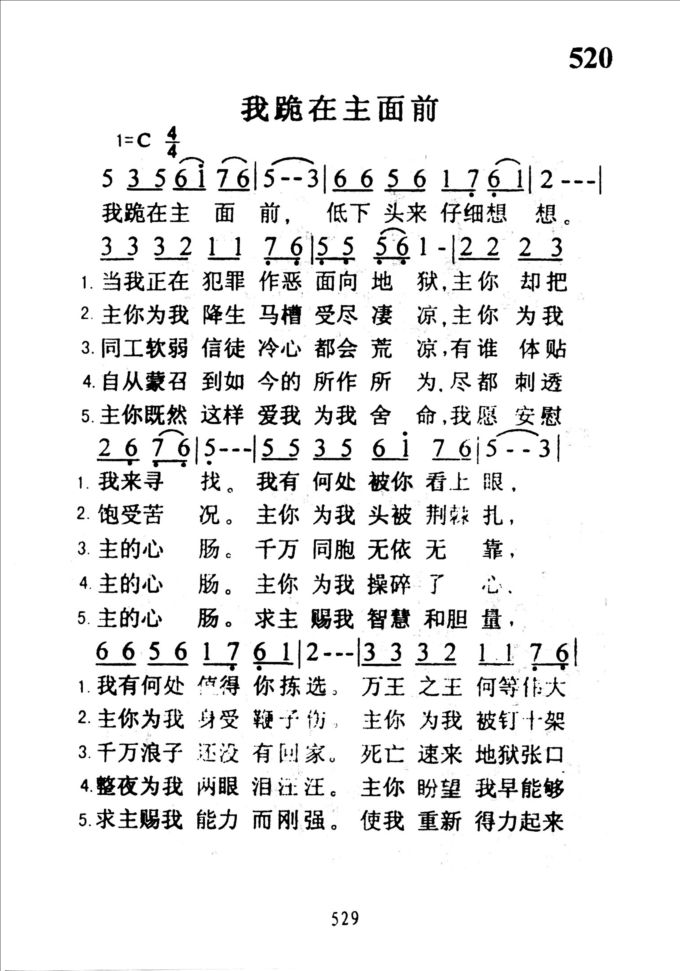 520
我跪在主面前
1=C 4/4
5 3 5 6 i 7 6 | 5 - - 3 | 6 6 5 6 1 7 6 1 | 2 - - - |
我跪在主 面 前， 低下 头来 仔细想 想。
3 3 3 2 1 1 7 6 | 5 5 5 6 1 - | 2 2 2 3
1. 当我正在 犯罪 作恶 面向 地 狱，主你 却把
2. 主你为我 降生 马槽 受尽 凄 凉，主你 为我
3. 同工软弱 信徒 冷心 都会 荒 凉，有谁 体贴
4. 自从蒙召 到如 今的 所作 所 为，尽都 刺透
5. 主你既然 这样 爱我 为我 舍 命，我愿 安慰
2 6 7 6 | 5 - - - | 5 5 3 5 6 i 7 6 | 5 - - 3 |
1. 我来寻 找。 我有 何处 被你 看上 眼，
2. 饱受苦 况。 主你 为我 头被 荆棘 扎，
3. 主的心 肠。 千万 同胞 无依 无 靠，
4. 主的心 肠。 主你 为我 操碎 了 心，
5. 主的心 肠。 求主 赐我 智慧 和胆 量，
6 6 5 6 1 7 6 1 | 2 - - - | 3 3 3 2 1 1 7 6 |
1. 我有何处 值得 你拣 选。 万王 之王 何等 伟大
2. 主你为我 身受 鞭子 伤。 主你 为我 被钉 十架
3. 千万浪子 还没 有回 家。 死亡 速来 地狱 张口
4. 整夜为我 两眼 泪汪 汪。 主你 盼望 我早 能够
5. 求主赐我 能力 而刚 强。 使我 重新 得力 起来
529